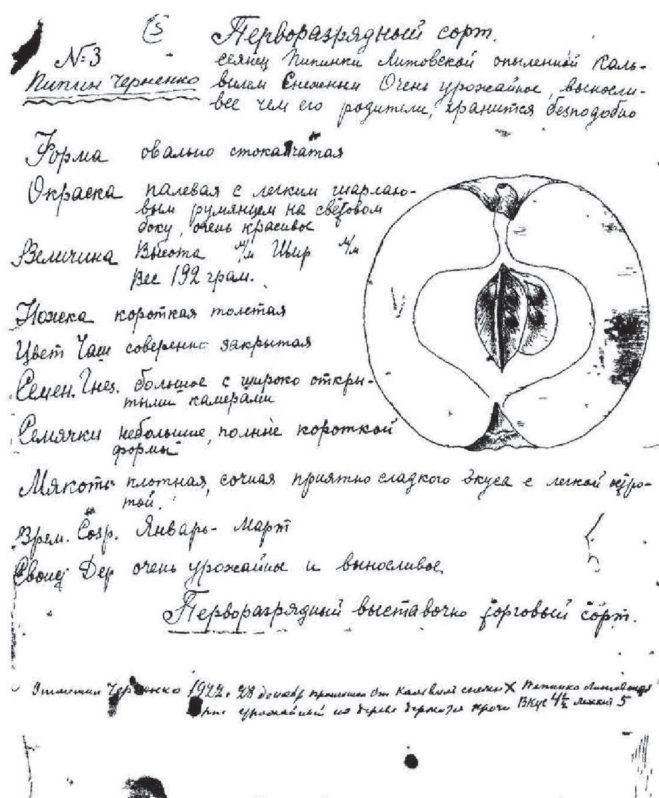 Перворазрядный сорт.
№3
Пипин Черненко
сеянец Пипинки Литовской опыленной Каль-
вилем Снежным Очень урожайное, выносли-
вее чем его родители, хранится безподобно
Форма овально стоканчатая
Окраска палевая с легким шарлаю-
вым румянцем на световом
боку, очень красивое
Величина Высота м/м Шир м/м
Вес 192 грам.
Ножека короткая толстая
Цвет Чаш соверенно закрытая
Семен. Гнез. большое с широко откры-
тыми камерами
Семячки небольшие, полные короткой
формы
Мякоть плотная, сочная приятно сладкого вкуса с легкой кисло-
той.
Врем. Созр. Январь - Март
Своид Дер очень урожайные и выносливое
Перворазрядный выставочно торговый сорт.
Черненко 1922. 28 декабр от Кальвиль снежн X Пепинка Литовская
урожайный на дереве держится Вкус 4½ 5